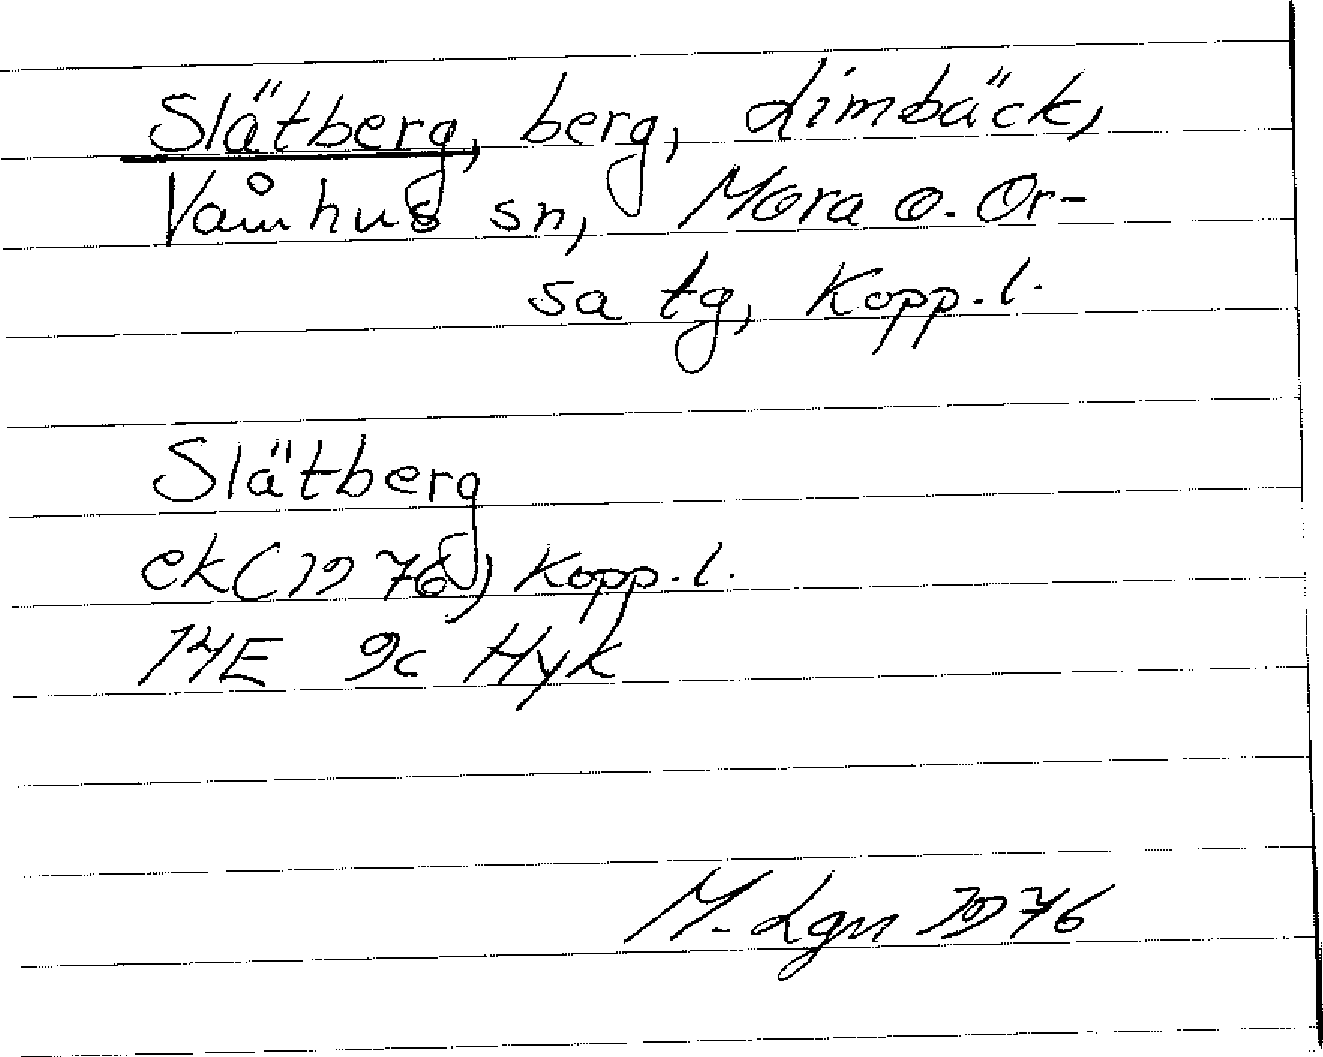 Slätberg, berg, Limbäck,
Våmhus sn, Mora o. Or-
sa tg, Kopp. l.
Slätberg
ek (1976) Kopp. l.
14E 9c Hyk
M. Lgn 1976